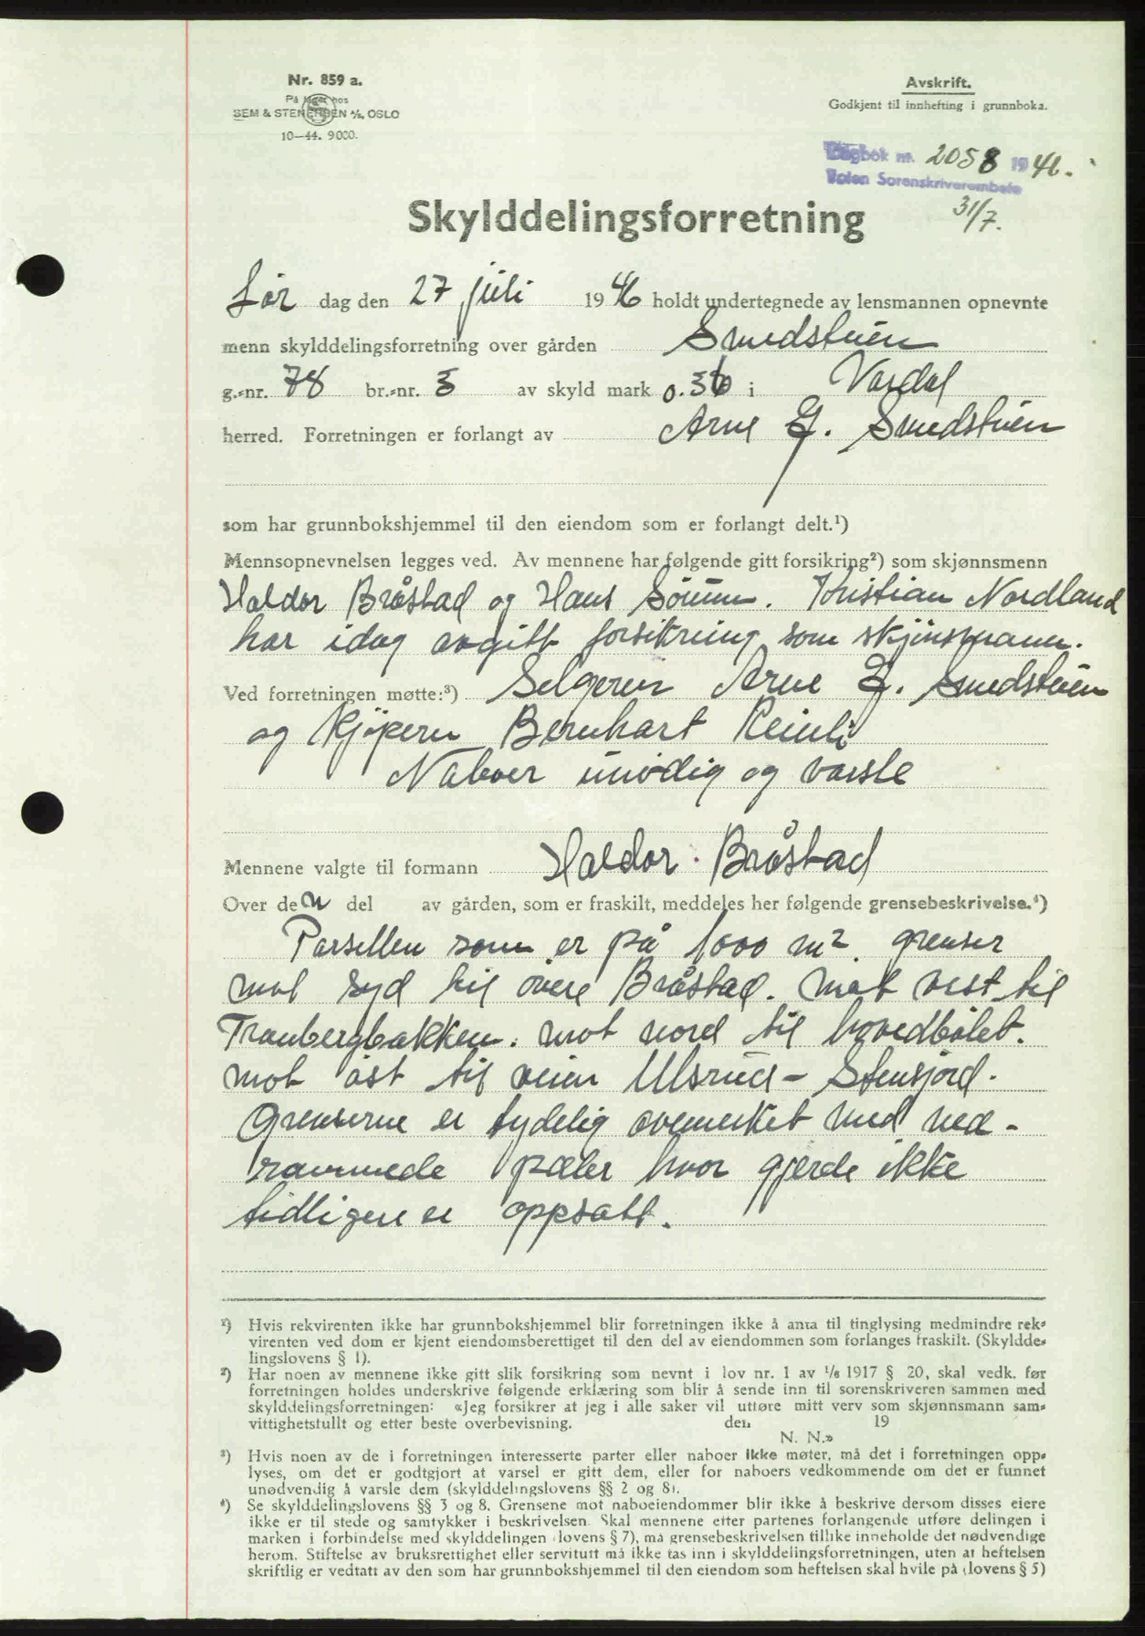 Nr. 859 a.
På lager hos
SEM & STENERSEN A/S, OSLO
10—44. 9000.
Avskrift.
Godkjent til innhefting i grunnboka.
Dagbok nr. 2058 1946.
Toten Sorenskriverembete
31/7.
Skylddelingsforretning
Lør dag den 27 juli 1946 holdt undertegnede av lensmannen opnevnte
menn skylddelingsforretning over gården Smedstuen
g.-nr. 78 br.-nr. 3 av skyld mark 0.36 i Vardal
herred. Forretningen er forlangt av Arne E. Smedstuen
som har grunnbokshjemmel til den eiendom som er forlangt delt.¹)
Mennsopnevnelsen legges ved. Av mennene har følgende gitt forsikring²) som skjønnsmenn
Haldor Bråstad og Hans Sörum. Kristian Nordland
har idag avgitt forsikring som skjönsmann.
Ved forretningen møtte:³) Selgeren Arne E. Smedstuen
og Kjöpern Bernhart Reinli
Naboer unödig og varsle
Mennene valgte til formann Haldor Bråstad
Over den del av gården, som er fraskilt, meddeles her følgende grensebeskrivelse.⁴)
Parsellen som er på 1000 m². grenser
mot syd til övre Bråstad. mot vest til
Tranbergbakken. mot nord til hovedbölet.
mot öst til veien Ulsrud - Stensjord.
Grenserne er tydelig avmerket med ned-
rammede pæler hvor gjerde ikke
tidligere er oppsatt.
¹) Hvis rekvirenten ikke har grunnbokshjemmel blir forretningen ikke å anta til tinglysing medmindre rek-
virenten ved dom er kjent eiendomsberettiget til den del av eiendommen som forlanges fraskilt. (Skyldde-
lingslovens § 1).
²) Har noen av mennene ikke gitt slik forsikring som nevnt i lov nr. 1 av ¹/₆ 1917 § 20, skal vedk. før
forretningen holdes underskrive følgende erklæring som blir å sende inn til sorenskriveren sammen med
skylddelingsforretningen: «Jeg forsikrer at jeg i alle saker vil utføre mitt verv som skjønnsmann sam-
vittighetsfullt og etter beste overbevisning. den 19
N. N.»
³) Hvis noen av de i forretningen interesserte parter eller naboer ikke møter, må det i forretningen opp-
lyses, om det er godtgjort at varsel er gitt dem, eller for naboers vedkommende om det er funnet
unødvendig å varsle dem (skylddelingslovens §§ 2 og 8).
⁴) Se skylddelingslovens §§ 3 og 8. Grensene mot naboeiendommer blir ikke å beskrive dersom disses eiere
ikke er til stede og samtykker i beskrivelsen. Skal mennene etter partenes forlangende utføre delingen i
marken i forbindelse med skylddelingen (lovens § 7), må grensebeskrivelsen tillike inneholde det nødvendige
herom. Stiftelse av bruksrettighet eller servitutt må ikke tas inn i skylddelingsforretningen, uten at heftelsen
skriftlig er vedtatt av den som har grunnbokshjemmel til den eiendom som heftelsen skal hvile på (lovens § 5)